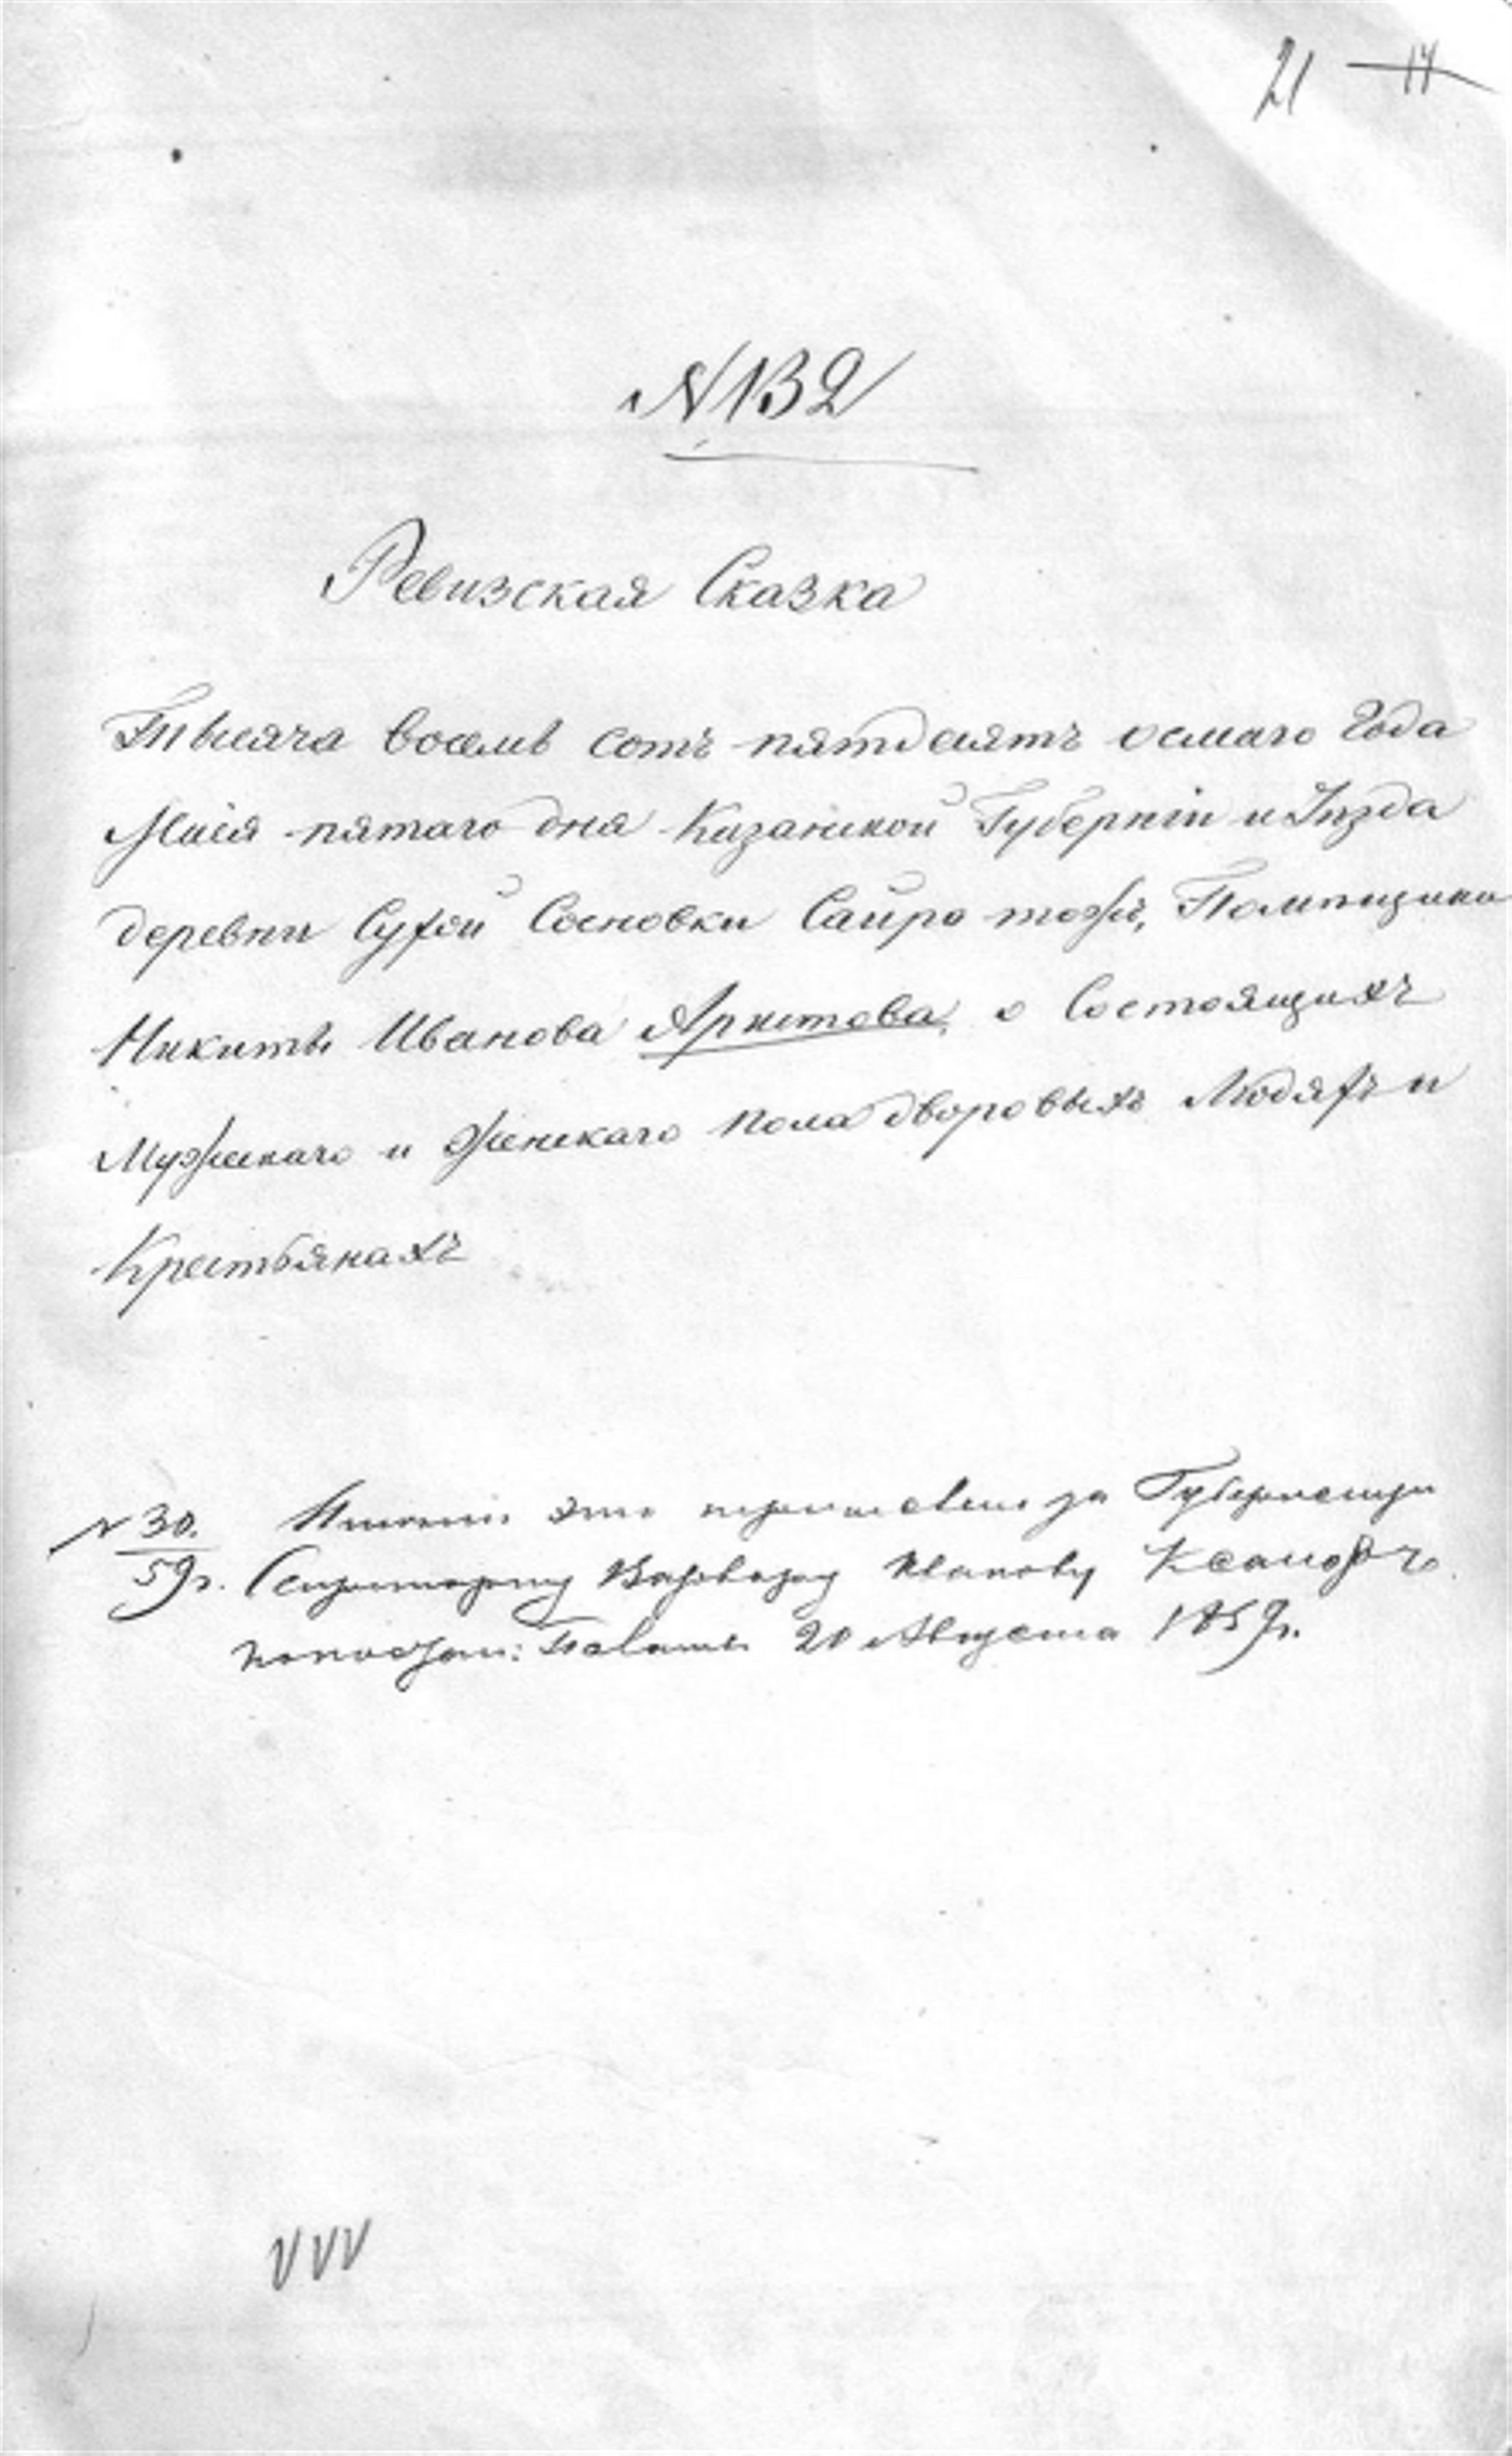 21 17
N 132
Ревизская Сказка
Тысяча восемь сотъ пятдесятъ осмаго года
Маія пятаго дня Казанской Губерніи и Уѣзда
деревни Сухой Сосновки Сапро тожъ, Помѣщика
Никиты Иванова Аристова, о Состоящихъ
Мужескаго и Женскаго пола дворовыхъ Людяхъ и
Крестьянахъ
N 30. Имѣніе это за Губернскую
59 г. Секретаршу Варвару Иванову
20 Августа 1859 г.
VVV